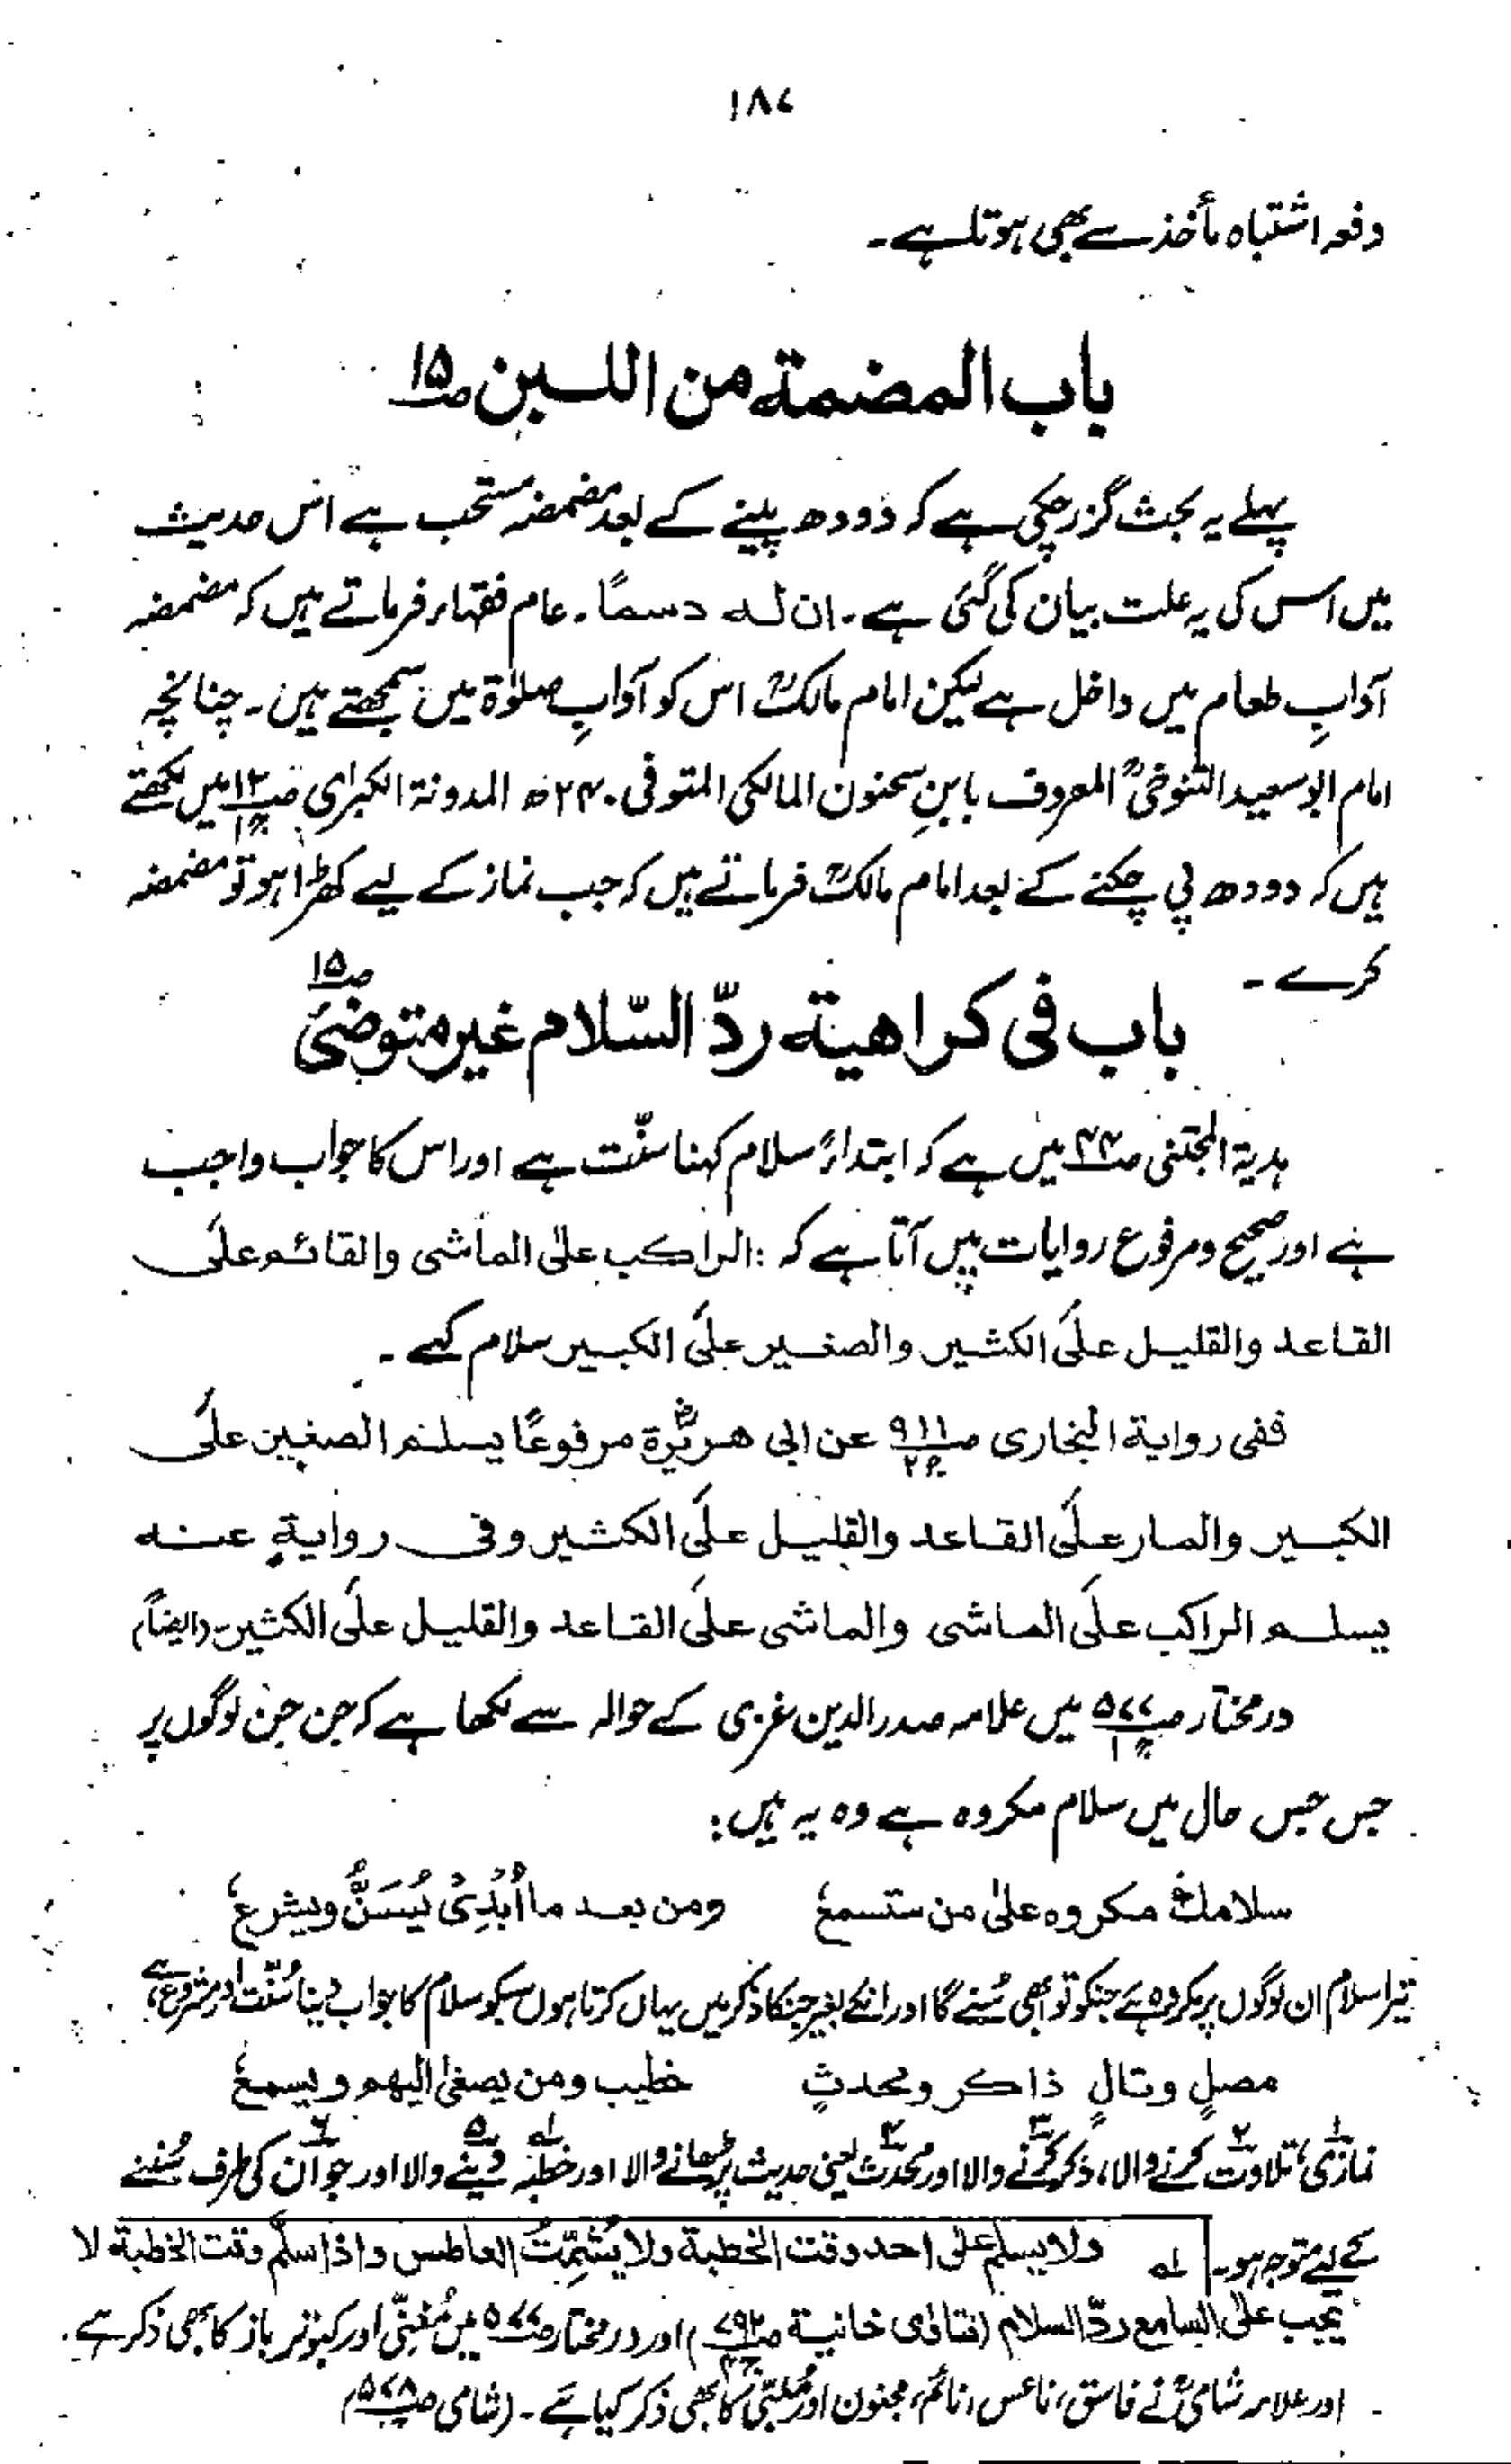 ۱۸۷
دفعہ اشتباہ مأخذ سے بھی ہوتا ہے۔
باب المضمة من اللبن ص۱۵
پہلے یہ بحث گزر چکی ہے کہ دودھ پینے کے بعد مضمضہ مستحب ہے اس حدیث
میں اس کی یہ علت بیان کی گئی ہے۔ ان لہ دسمًا۔ عام فقہاء فرماتے ہیں کہ مضمضہ
آدابِ طعام میں داخل ہے لیکن امام مالکؒ اس کو آدابِ صلوٰۃ میں سمجھتے ہیں۔ چنانچہ
امام ابو سعید التنوخیؒ المعروف بابنِ سحنون المالکی المتوفی ۲۴۰ھ المدونة الکبرٰی ص۱۲ ج۱ میں لکھتے
ہیں کہ دودھ پی چکنے کے بعد امام مالکؒ فرماتے ہیں کہ جب نماز کے لیے کھڑا ہو تو مضمضہ
کرے۔
باب فی کراھیة ردّ السّلام غیر متوضیٔ ص۱۵
ہدیة المجتنی ص۴۴ میں ہے کہ ابتداءً سلام کہنا سنّت ہے اور اس کا جواب واجب
ہے اور صحیح ومرفوع روایات میں آتا ہے کہ: الراکب علی الماشی والقائم علی
القاعد والقلیل علی الکثیر والصغیر علی الکبیر سلام کہے۔
ففی روایة البخاری ص۹۱۱ ج۲ عن ابی ھریرۃؓ مرفوعًا یسلم الصغیر علی
الکبیر والمار علی القاعد والقلیل علی الکثیر وفی روایةٍ عنہ
یسلم الراکب علی الماشی والماشی علی القاعد والقلیل علی الکثیر۔ (ایضاً)
درمختار ص۵۷۷ ج۱ میں علامہ صدرالدین غزی کے حوالہ سے لکھا ہے کہ جن جن لوگوں پر
جس جس حال میں سلام مکروہ ہے وہ یہ ہیں:
سلامك مکروہ علٰی من ستسمعُ ومن بعد ما اُبْدِیْ یُسَنُّ ویشرعُ
تیرا سلام ان لوگوں پر مکروہ ہے جنکو تو ابھی سُنے گا اور انکے بغیر جنکا ذکر میں یہاں کرتا ہوں سبکو سلام کا جواب دینا سُنّت اور مشروع ہے
مصلٍ وتالٍ ذاکر ومحدثٍ خطیب ومن یصغی الیھم ویسمعُ
نمازی۱، تلاوت۲ کرنے والا، ذکر۳ کرنے والا اور محدث۴ یعنی حدیث پڑھانے والا اور خطبہ۱ھ دینے۵ والا اور جو۶ ان کی طرف سُننے
کے لیے متوجہ ہو۔
۱ھ ولا یسلم علی احد وقت الخطبة ولا یُشَمِّتُ العاطس واذا سلّم وقت الخطبة لا
یجب علی السامع ردّ السلام (فتاوٰی خانیة ص۷۹۲) اور درمختار ص۵۷۷ میں مُغنّی اور کبوتر باز کا بھی ذکر ہے۔
اور علامہ شامیؒ نے فاسق، ناعس، نائم، مجنون اور مُلَبّی کا بھی ذکر کیا ہے۔ (شامی ص۵۷۸)